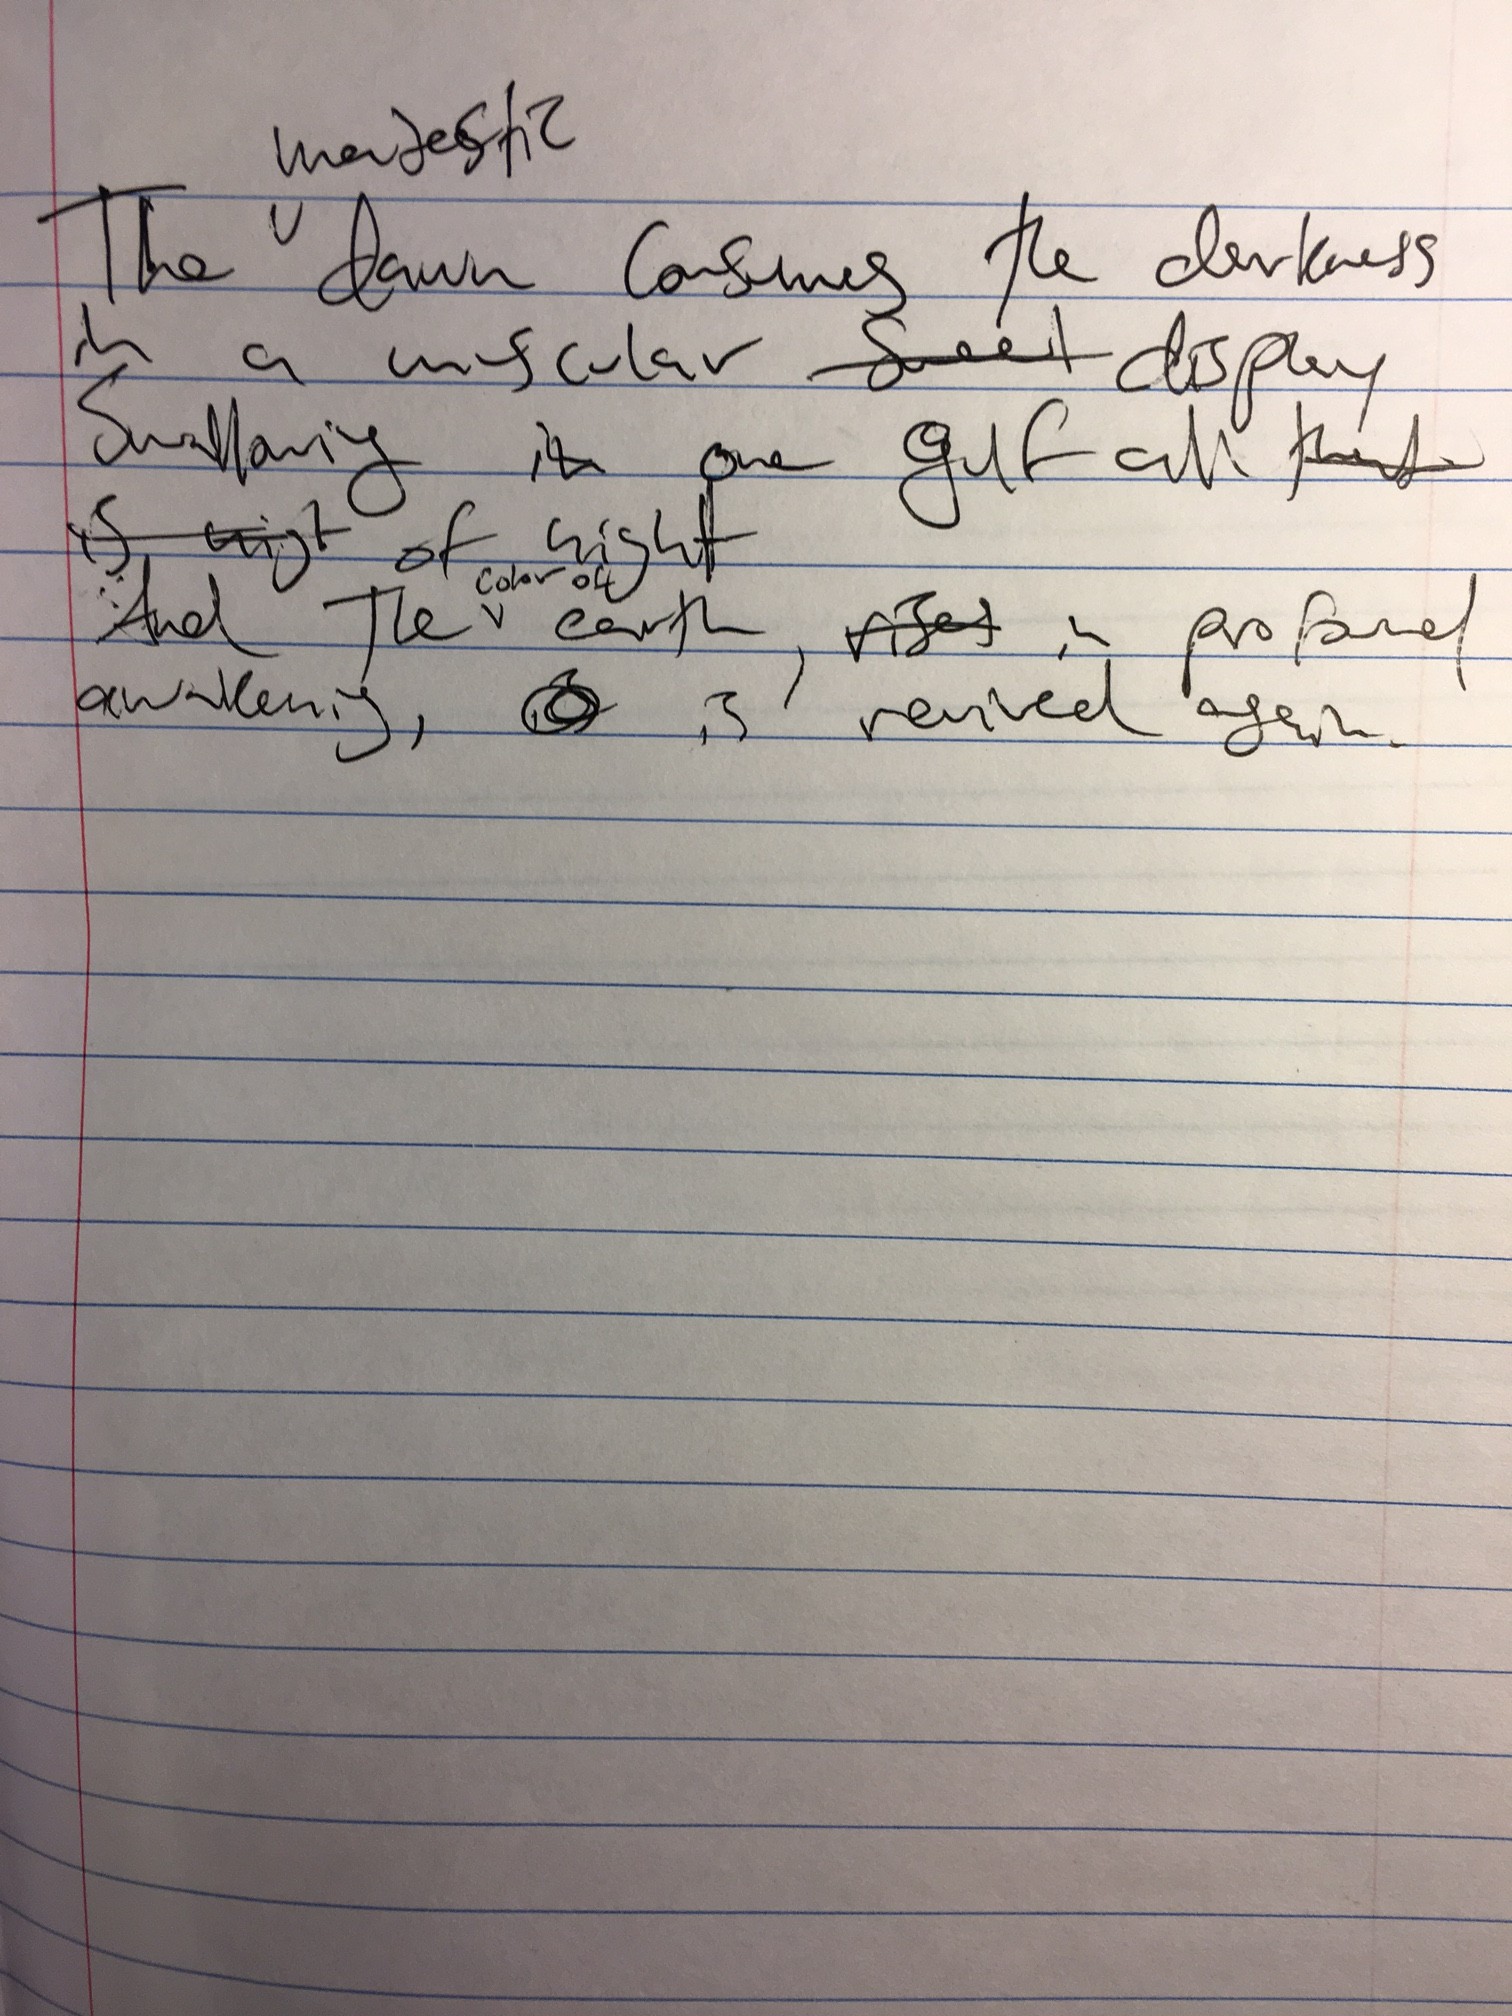 majestic
The dawn consumes the darkness
in a muscular sweet display
Swallowing in one gulf all that
is night of night
color of
And the earth, rises in profound
awakening, is revived again.